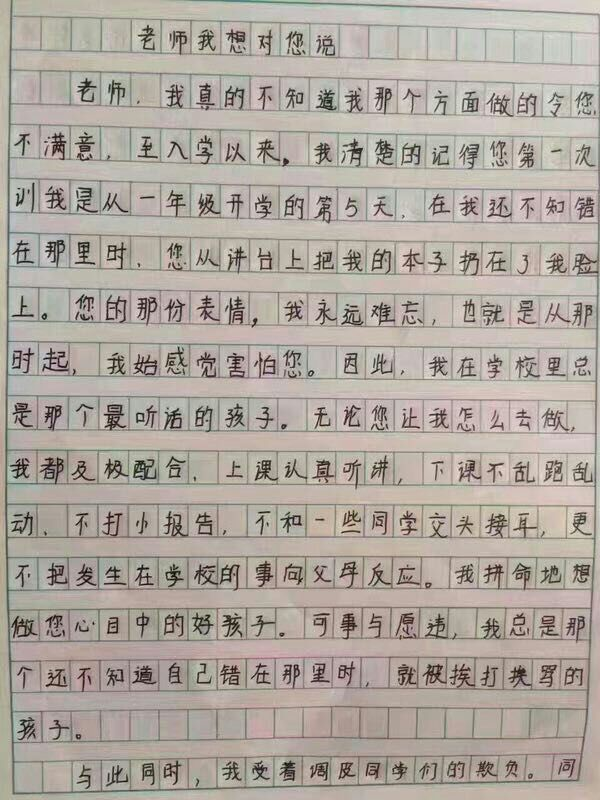 老师我想对您说
老师,我真的不知道我那个方面做的令您
不满意,至入学以来。我清楚的记得您第一次
训我是从一年级开学的第5天,在我还不知错
在那里时,您从讲台上把我的本子扔在了我脸
上。您的那份表情,我永远难忘,也就是从那
时起,我始感觉害怕您。因此,我在学校里总
是那个最听话的孩子。无论您让我怎么去做,
我都及极配合,上课认真听讲,下课不乱跑乱
动,不打小报告,不和一些同学交头接耳,更
不把发生在学校的事向父母反应。我拼命地想
做您心目中的好孩子。可事与愿违,我总是那
个还不知道自己错在那里时,就被挨打挨骂的
孩子。
与此同时,我受着调皮同学们的欺负。同